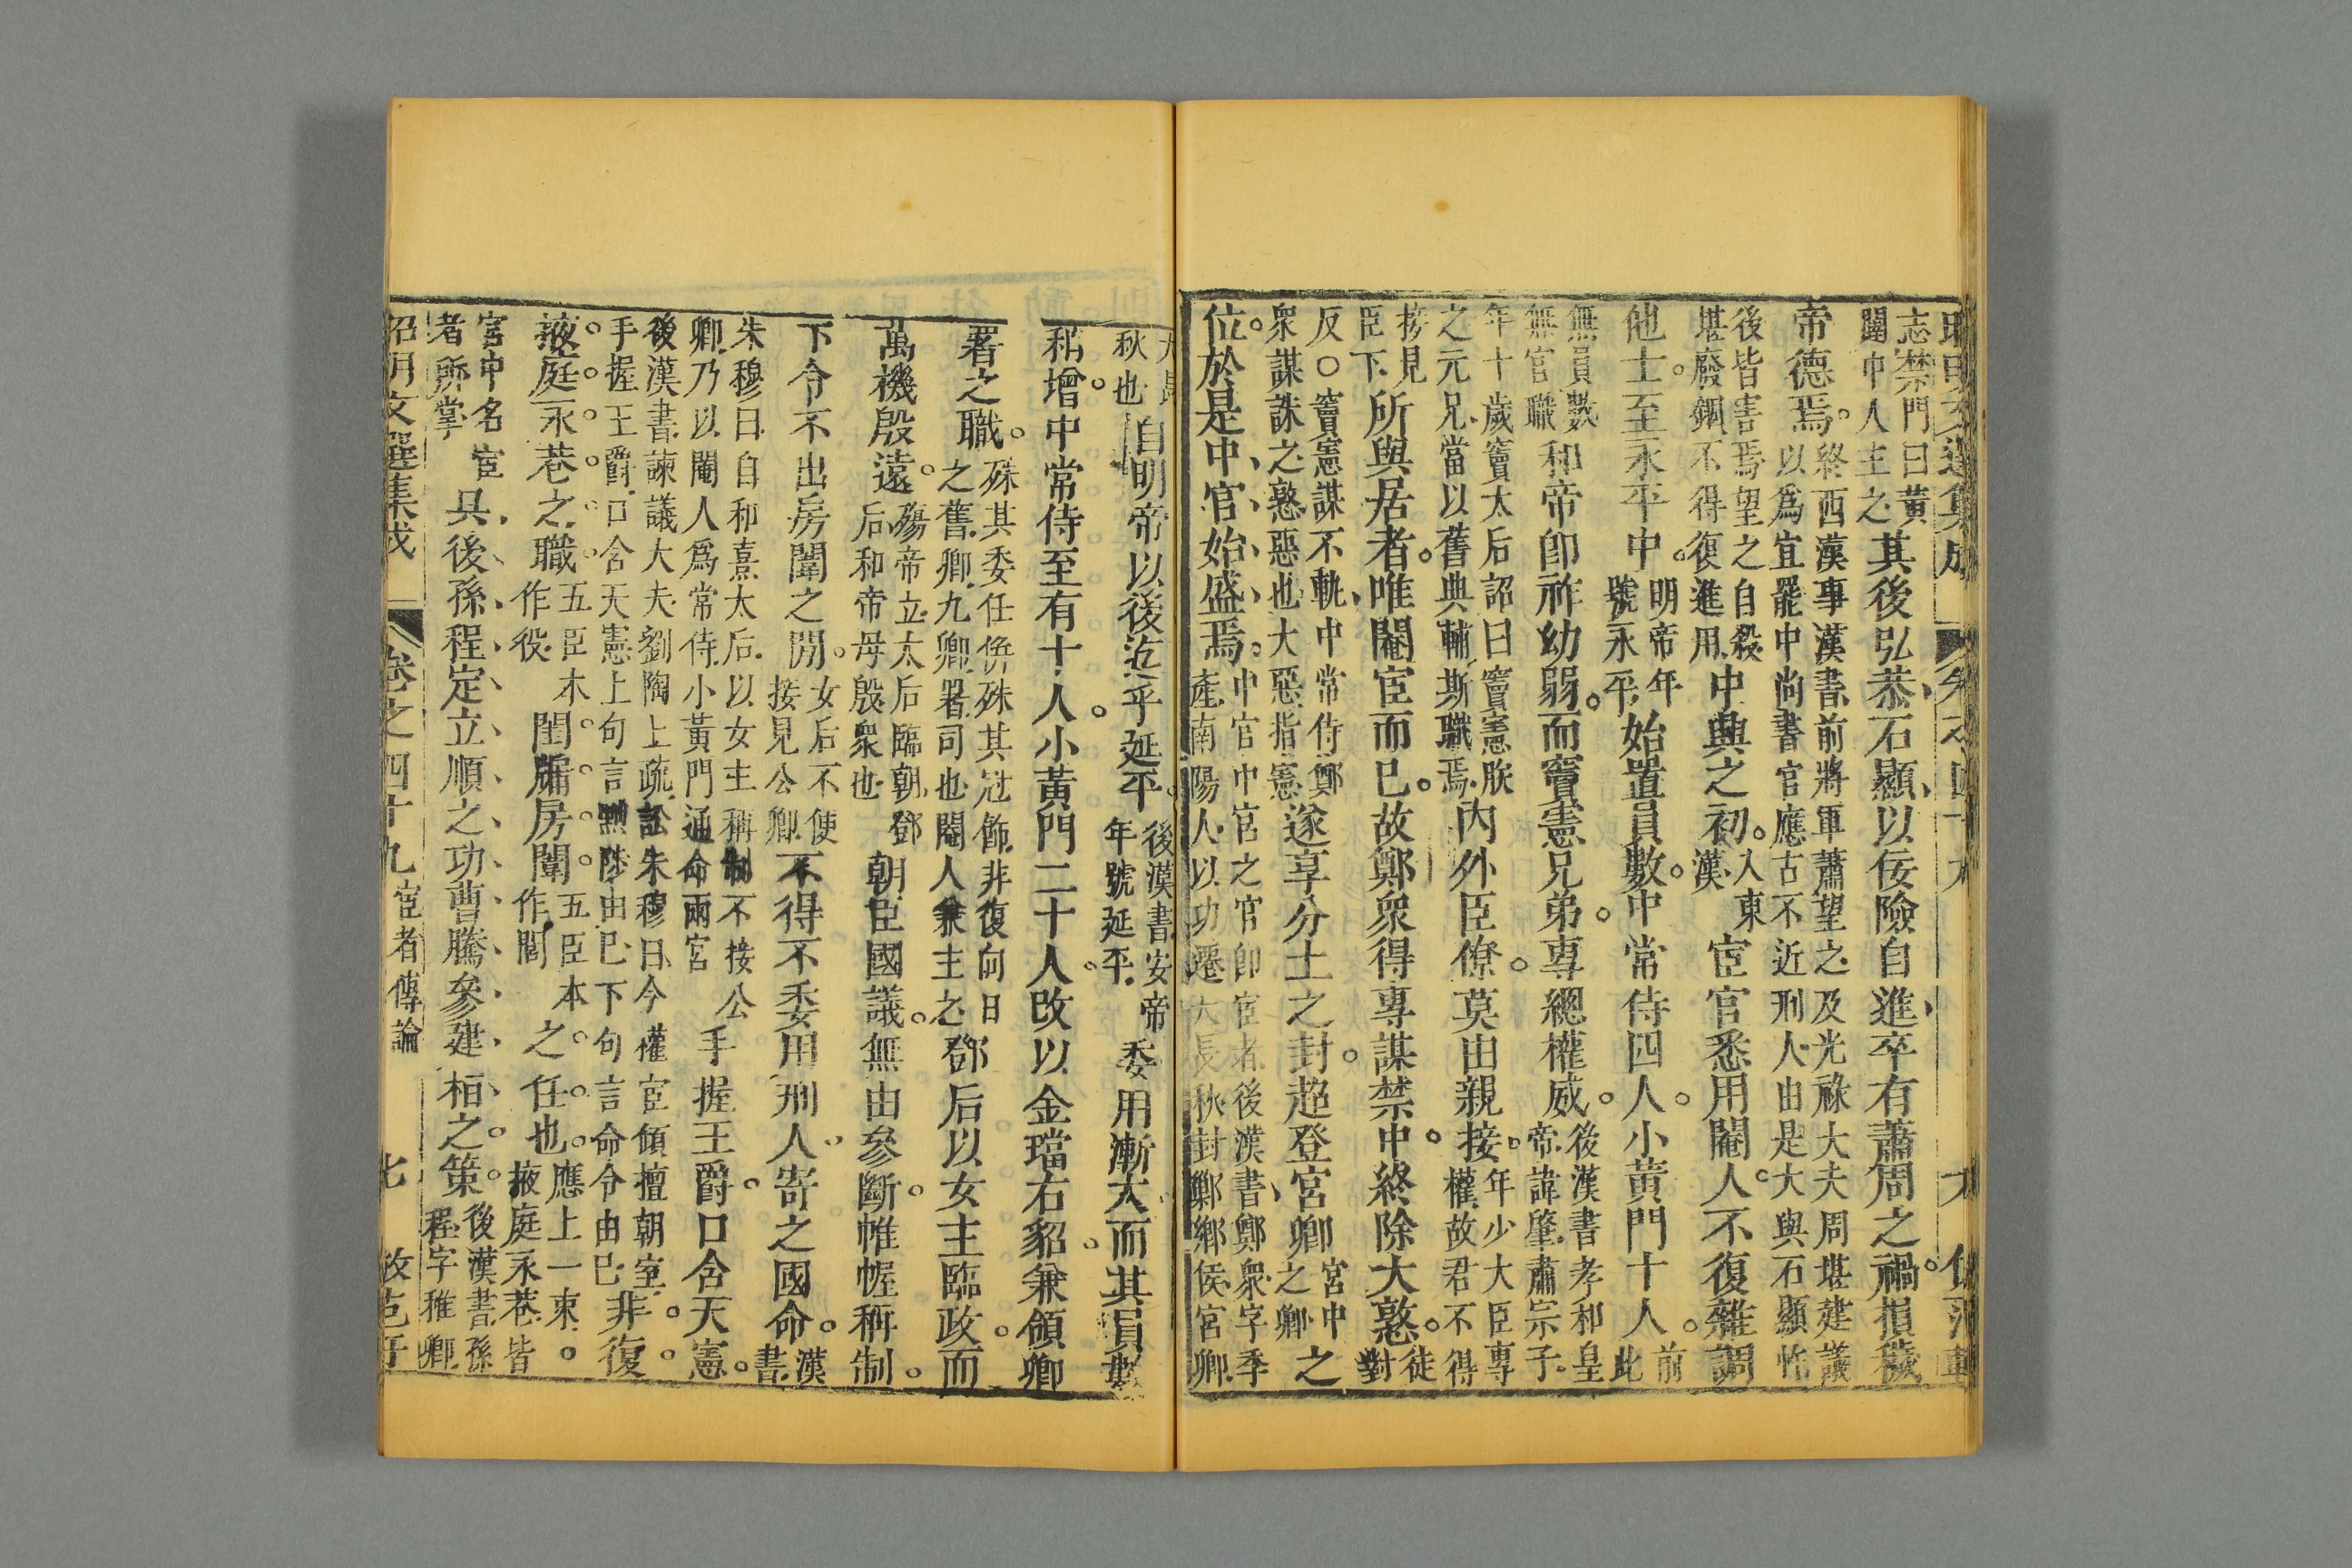 志禁門曰黃闥中人主之其後弘恭石顯以佞險自進卒有蕭周之禍損穢
帝德焉終西漢事漢書前將軍蕭望之及光祿大夫周堪建議以爲宜罷中尚書官應古不近刑人由是大與石顯忤
後皆害焉望之自殺堪廢錮不得復進用中興之初入東漢宦官悉用閹人不復雜調
他士至永平中明帝年號永平始置員數中常侍四人小黃門十人前此
無員數無官職和帝卽祚幼弱而竇憲兄弟專總權威後漢書孝和皇帝諱肇肅宗子
年十歲竇太后詔曰竇憲朕之元兄當以舊典輔斯職焉內外臣僚莫由親接年少大臣專權故君不得
接見臣下所與居者唯閹宦而已故鄭衆得專謀禁中終除大憝徒對
反○竇憲謀不軌中常侍鄭衆謀誅之憝惡也大惡指憲遂享分土之封超登宮卿宮中之卿之
位於是中官始盛焉中官中宮之官卽宦者後漢書鄭衆字季產南陽人以功遷大長秋封鄛鄉侯宮卿
秋也自明帝以後迄乎延平後漢書安帝年號延平委用漸大而其員數
稍增中常侍至有十人小黃門二十人改以金璫右貂兼領卿
署之職殊其委任倂殊其冠飾非復向日之舊卿九卿署司也閹人兼主之鄧后以女主臨政而
萬機殷遠殤帝立太后臨朝鄧后和帝母殷衆也朝臣國議無由參斷帷幄稱制
下令不出房闈之閒女后不便接見公卿不得不委用刑人寄之國命漢書
朱穆曰自和熹太后以女主稱制不接公卿乃以閹人爲常侍小黃門通命兩宮手握王爵口含天憲
後漢書諫議大夫劉陶上疏訟朱穆曰今權宦傾擅朝室手握王爵口含天憲上句言黜陟由已下句言命令由已非復
掖庭永巷之職五臣木作役閨牖房闈五臣本作閤之任也應上一束掖庭永巷皆
宮中名宦者所掌其後孫程定立順之功曹騰參建桓之策後漢書孫程字稚卿
昭明文選集成 卷之四十九宦者傳論